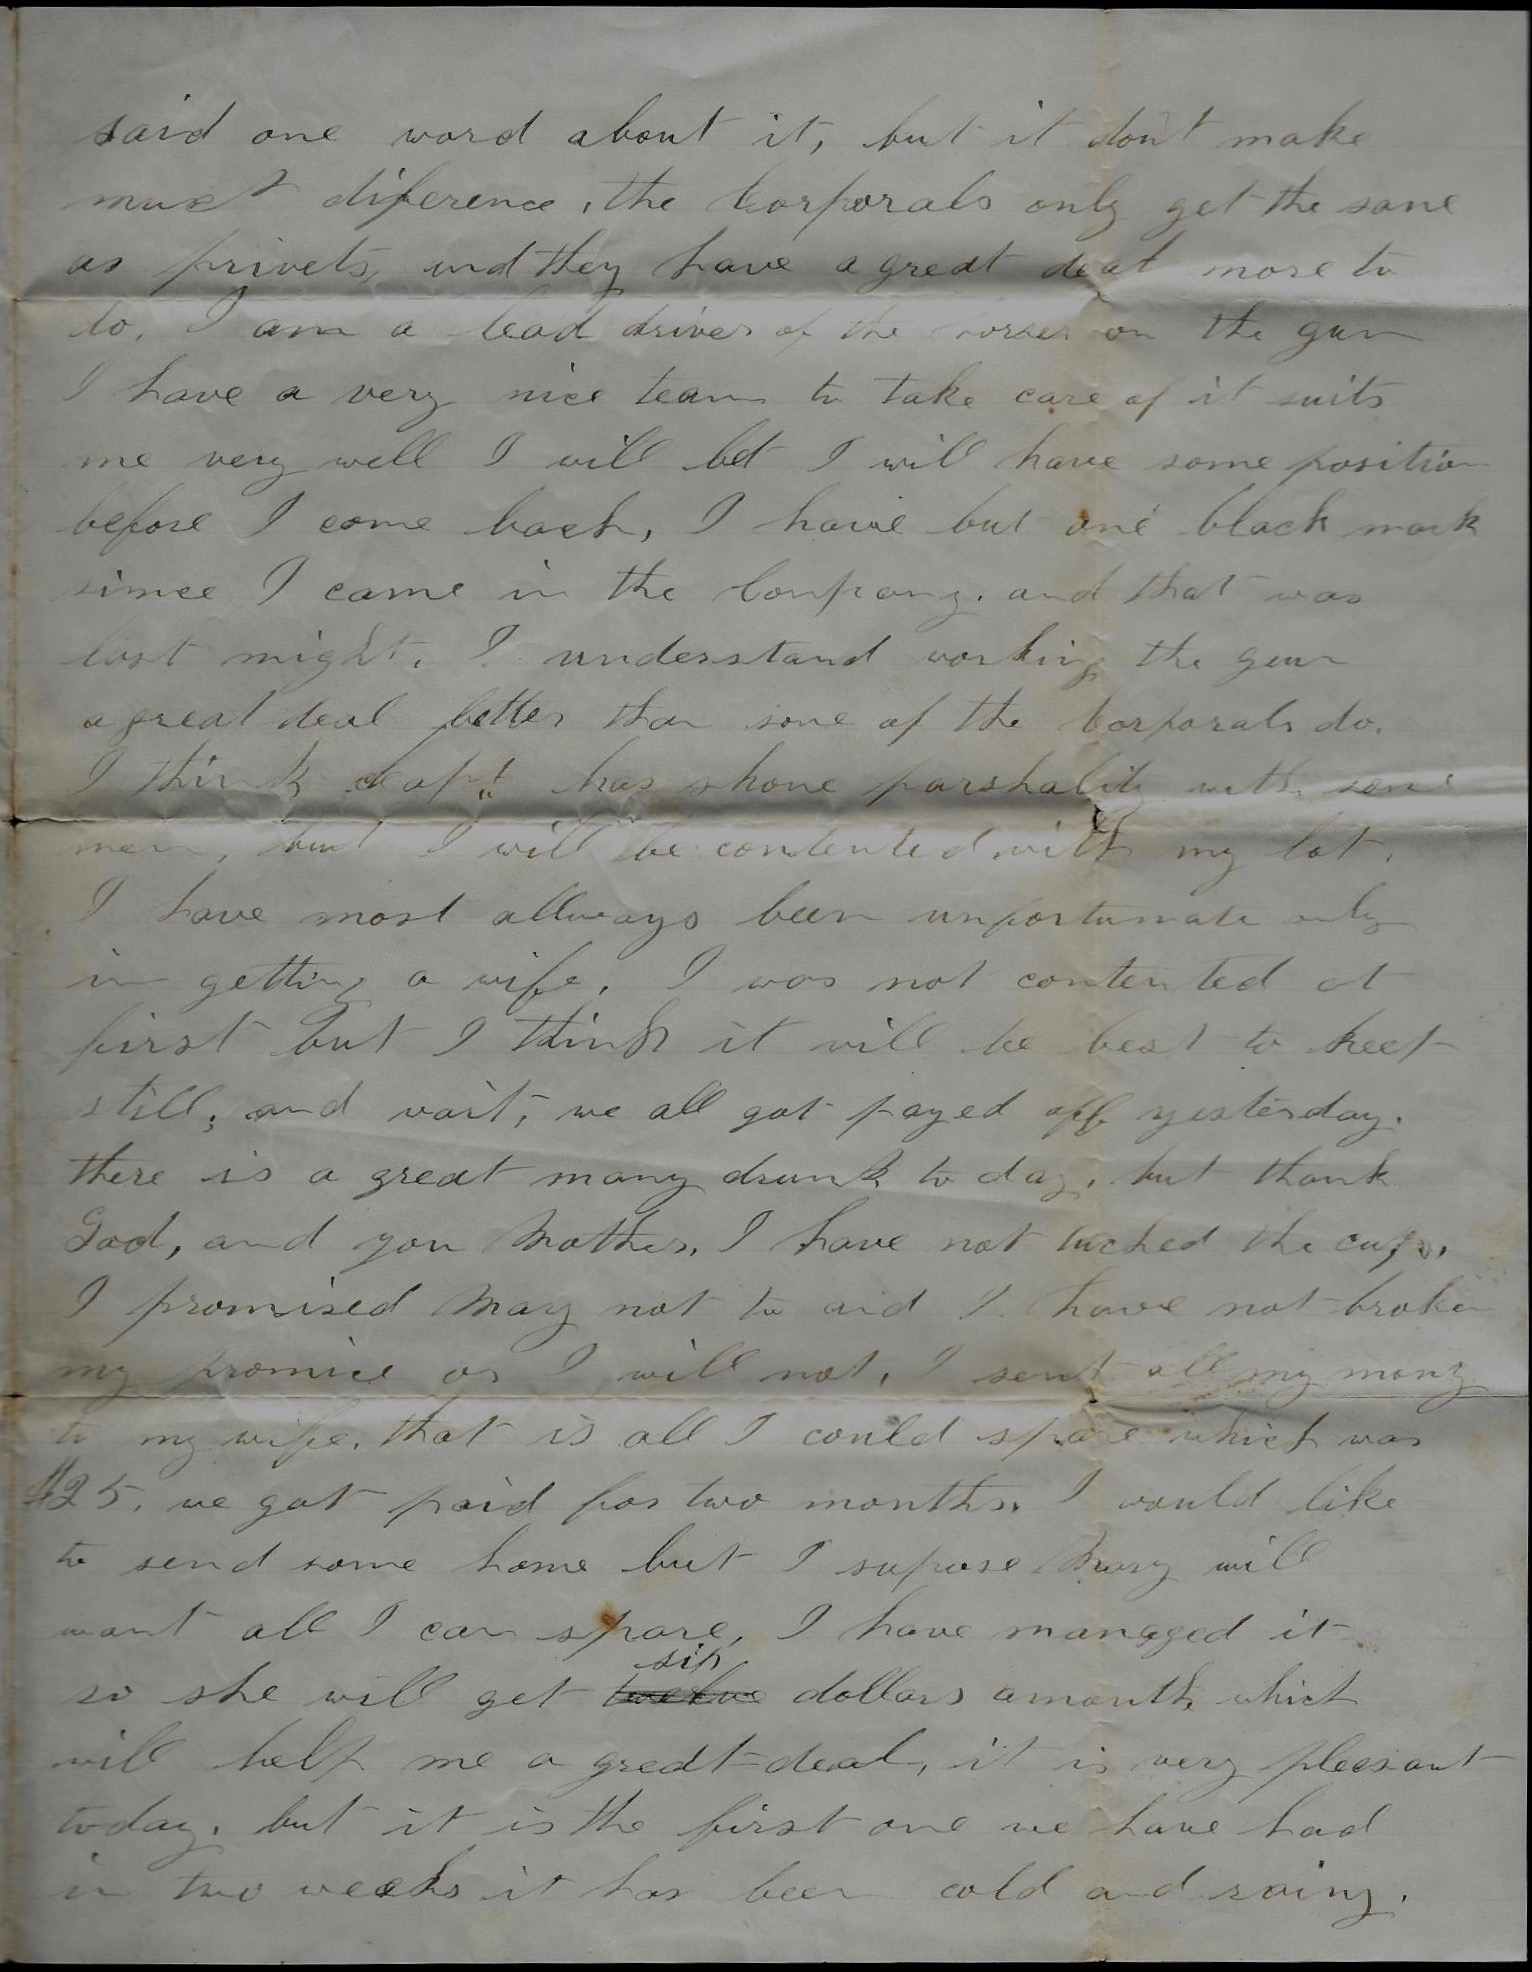 said one word about it, but it dont make
much diference, the Corporals only get the same
as privets, and they have a great deal more to
do. I am a lead driver of the horses on the gun
I have a very nice team to take care of it suits
me very well I will bet I will have some position
before I come back, I have but one black mark
since I came in the Company. and that was
last night. I understand working the gun
a great deal better than some of the Corporals do.
I think Capt. has shone parshality with some
men, but I will be contented with my lot.
I have most allways been unfortunate only
in getting a wife. I was not contented at
first but I think it will be best to keep
still, and wait, we all got payed off yesterday.
there is a great many drunk to day, but thank
God, and you Mother, I have not tuched the cup,
I promised Mary not to and I have not broken
my promice or I will not, I sent all my mony
to my wife, that is all I could spare which was
$25. we got paid for two months. I would like
to send some home but I supose Mary will
want all I can spare, I have managed it
six
so she will get twelve dollars a month, which
will help me a great deal, it is very pleesant
today, but it is the first one we have had
in two weeks it has been cold and rainy.